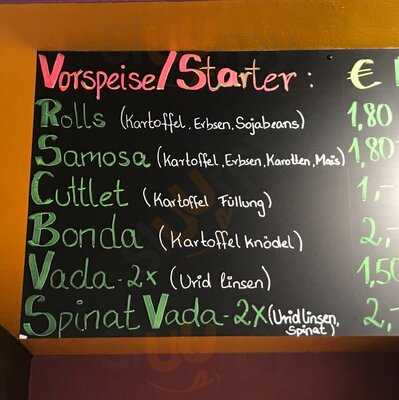 Vorspeise/Starter : €
Rolls (Kartoffel, Erbsen, Sojabeans) 1,80
Samosa (Kartoffel, Erbsen, Karotten, Mais) 1,80
Cuttlet (Kartoffel Füllung) 1,-
Bonda (Kartoffel knödel) 2,-
Vada - 2x (Urid linsen) 1,50
Spinat Vada - 2x (Urid linsen, 2,-
Spinat)